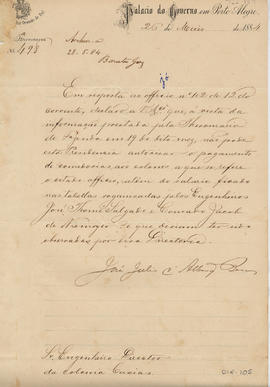 Palacio do Governo em Porto Alegre,
26 de Maio de 1884
N. 498
Archive
28.5.84
Em resposta ao officio n. 102 de 12 do
corrente, declaro a V. S.ª que, á vista da
informação prestada pela Thesouraria
de Fazenda em 19 do dito mez, não pode
esta Presidencia autorisar o pagamento
de comedorias aos colonos a que se refere
o citado officio, alem do salario fixado
nas tabellas organisadas pelos Engenheiros
José Thomé Salgado e
de que deviam ter sido
observadas por essa Directoria.
José Julio de Barros
Sr. Engenheiro Director
da colonia Caxias
014.105